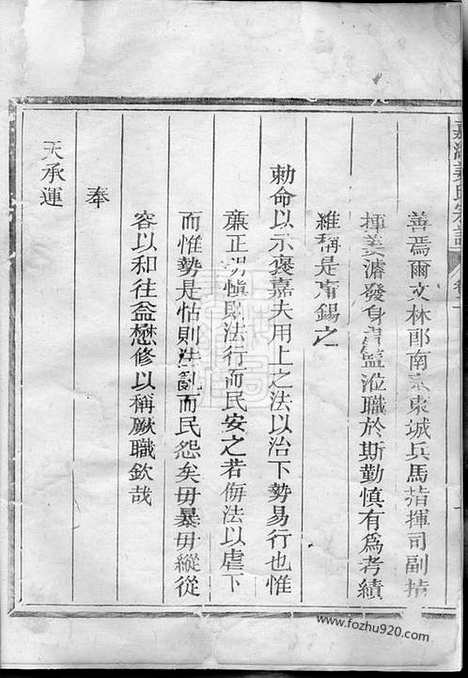 善焉爾文林郎南京東城兵馬指揮司副指
揮姜濬發身胄監涖職於斯勤慎有爲考績
維稱是宜錫之
勅命以示褒嘉夫用上之法以治下勢易行也惟
廉正明慎則法行而民安之若侮法以虐下
而惟勢是怙則法亂而民怨矣毋暴毋縱從
容以和往益懋修以稱厥職欽哉
奉
天承運
www.fozhu920.com